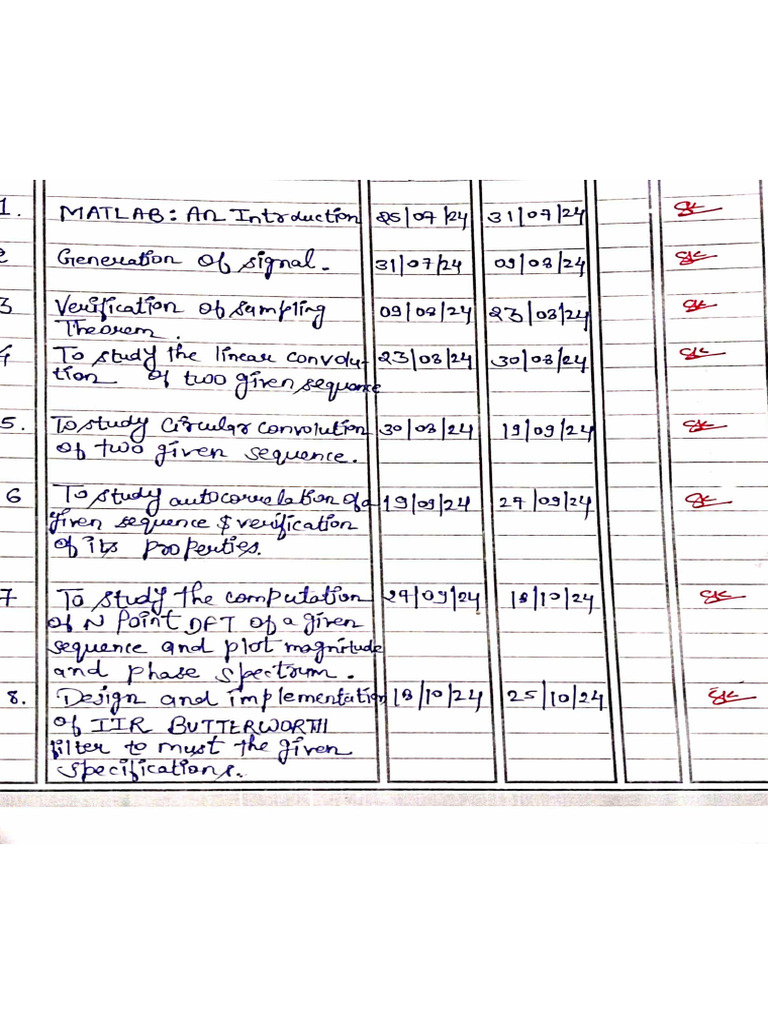 1. MATLAB: An Introduction 25/07/24 31/07/24
2 Generation of signal. 31/07/24 09/08/24
3 Verification of sampling 09/08/24 23/08/24
Theorem.
4 To study the linear convolu- 23/08/24 30/08/24
tion of two given sequence
5. To study circular convolution 30/08/24 19/09/24
of two given sequence.
6 To study autocorrelation of a 19/09/24 27/09/24
given sequence & verification
of its properties.
7 To study the computation 27/09/24 18/10/24
of N Point DFT of a given
sequence and plot magnitude
and phase spectrum.
8. Design and implementation 18/10/24 25/10/24
of IIR BUTTERWORTH
filter to must the given
specifications.